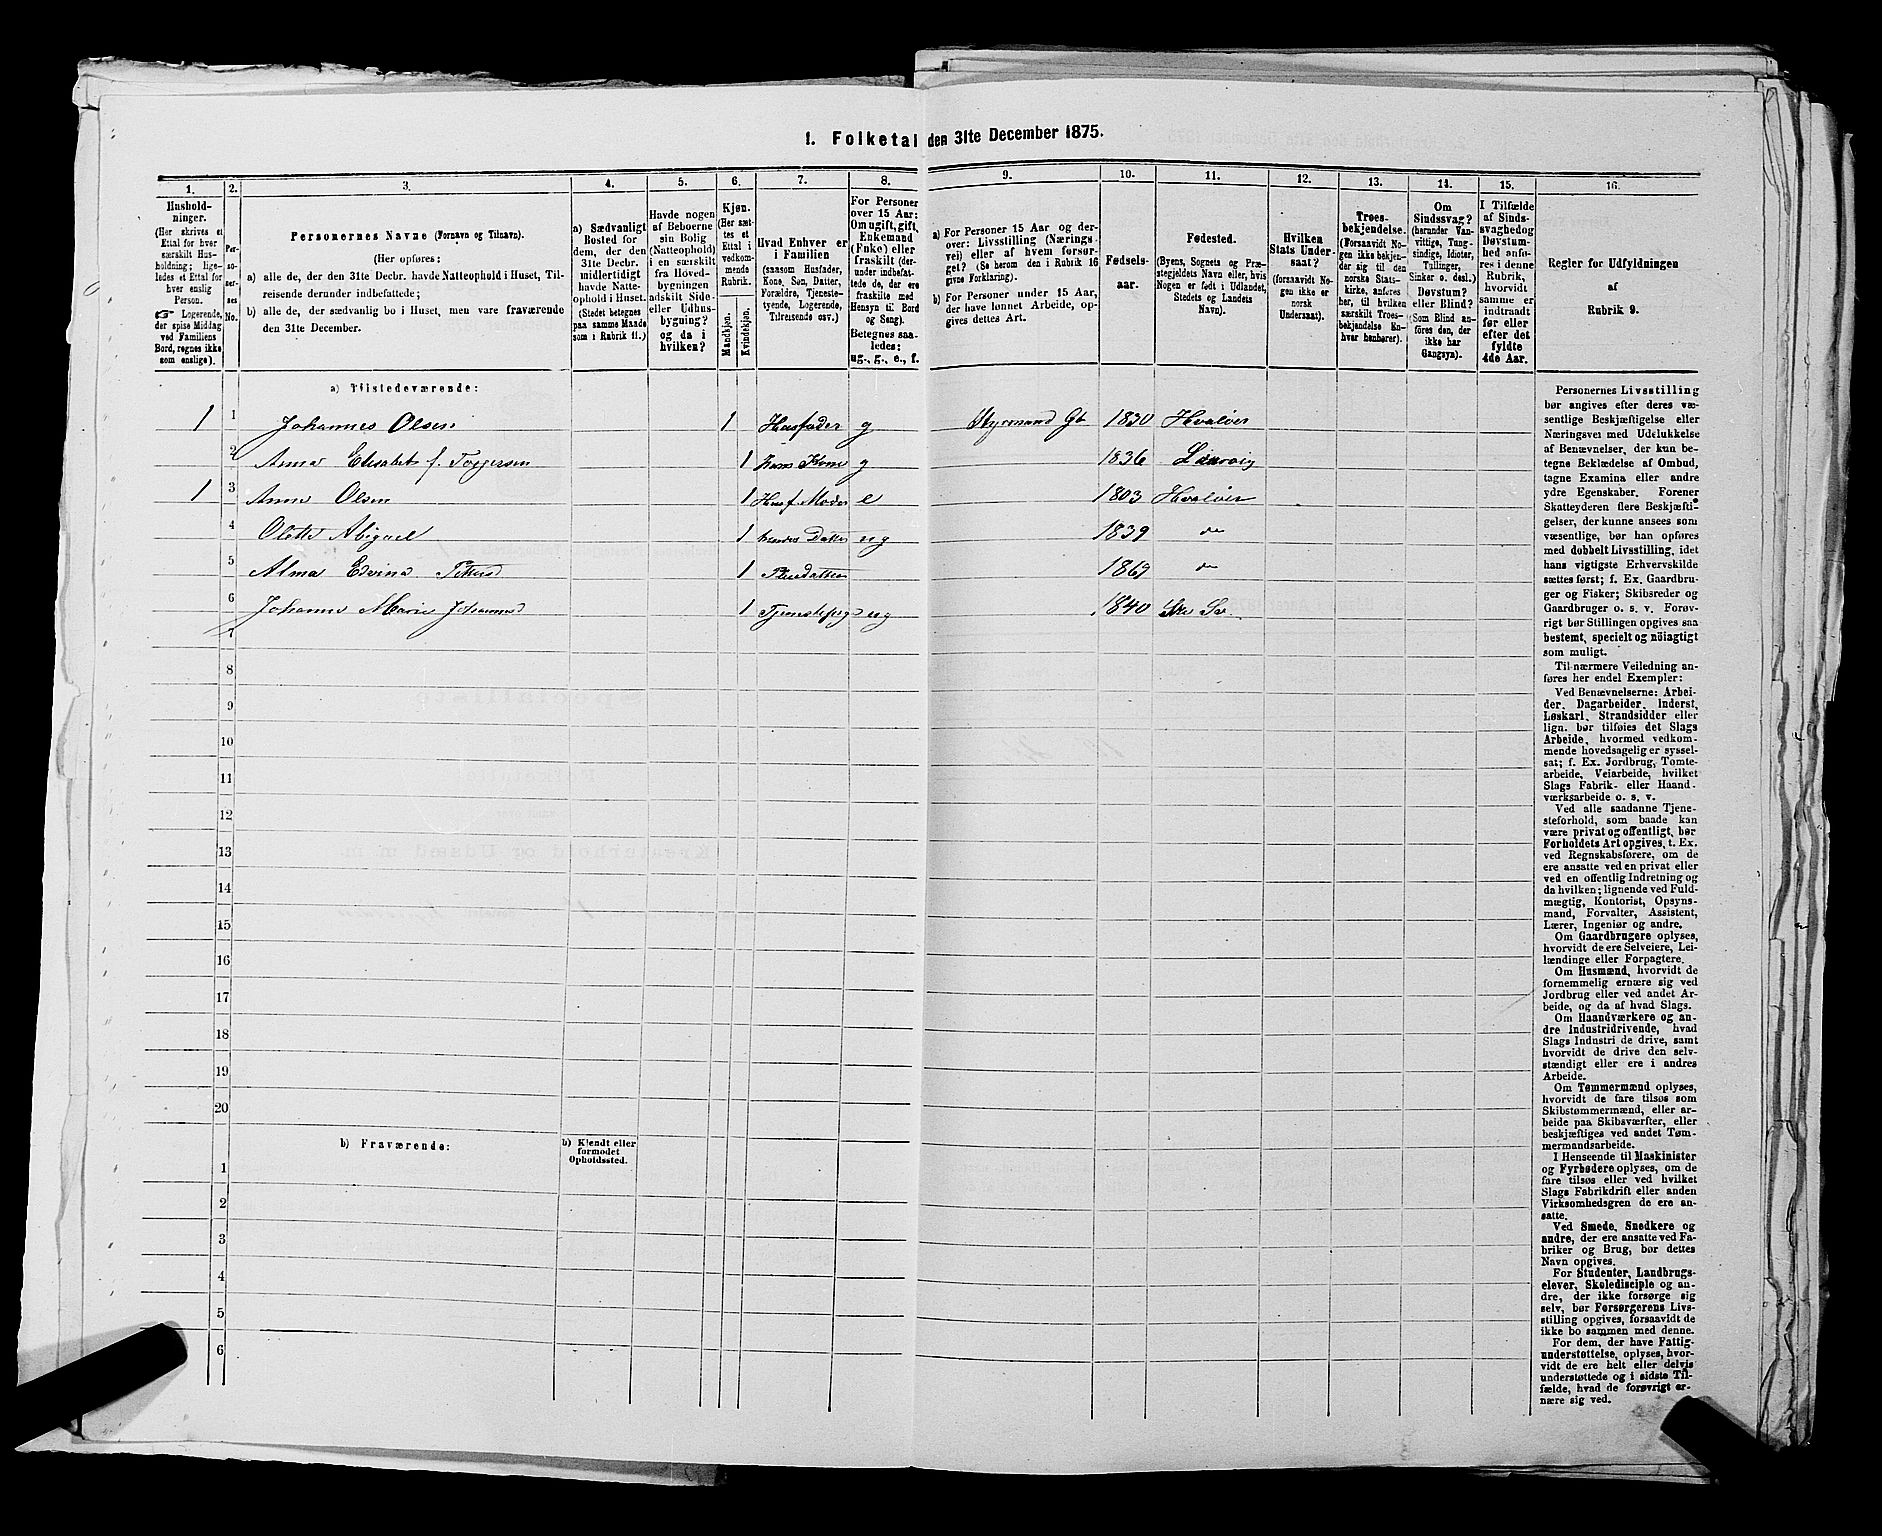 1. Folketal den 31te December 1875.
1. 2. 3. 4. 5. 6. 7. 8. 9. 10. 11. 12. 13. 14. 15. 16.
Husholdninger.
(Her skrives et
Ettal for hver
særskilt Husholdning;
ligeledes
et Ettal for
hver enslig
Person.
☞ Logerende,
der spise Middag
ved Familiens
Bord, regnes ikke
som enslige).
Personernes No.
Personernes Navne (Fornavn og Tilnavn).
(Her opføres:
a) alle de, der den 31te Decbr. havde Natteophold i Huset, Tilreisende
derunder indbefattede;
b) alle de, der sædvanlig bo i Huset, men vare fraværende
den 31te December.
a) Sædvanligt
Bosted for
dem, der den
31te Decbr.
midlertidigt
havde Natteophold
i Huset.
(Stedet betegnes
paa samme Maade
som i Rubrik 11.)
Havde nogen
af Beboerne
sin Bolig
(Natteophold)
i en særskilt
fra Hovedbygningen
adskilt Side-
eller Udhusbygning?
og da i
hvilken?
Kjøn.
(Her sættes
et
Ettal i
vedkommende
Rubrik.
Mandkjøn.
Kvindekjøn.
Hvad Enhver er
i Familien
(saasom Husfader,
Kone, Søn, Datter,
Forældre, Tjenestetyende,
Logerende,
Tilreisende osv.)
For Personer
over 15 Aar:
Om ugift, gift,
Enkemand
(Enke) eller
fraskilt (derunder
indbefattede
de, der ere
fraskilte med
Hensyn til Bord
og Seng).
Betegnes saaledes:
ug., g., e., f.
a) For Personer 15 Aar og derover:
Livsstilling (Næringsvei)
eller af hvem forsørget?
(Se herom den i Rubrik 16
givne Forklaring).
b) For Personer under 15 Aar,
der have lønnet Arbeide, opgives
dettes Art.
Fødselsaar.
Fødested.
(Byens, Sognets og Præstegjeldets
Navn eller, hvis
Nogen er født i Udlandet,
Stedets og Landets
Navn).
Hvilken
Stats Undersaat?
(forsaavidt Nogen
ikke er
norsk
Undersaat).
Troesbekjendelse.
(Forsaavidt Nogen
ikke bekjender
sig til den
norske Statskirke,
anføres
her, til hvilken
særskilt Troesbekjendelse
Enhver
henhører).
Om
Sindssvag?
(herunder Vanvittige,
Tungsindige,
Idioter,
Tullinger,
Sinker o. desl.)
Døvstum?
eller Blind?
(Som Blind anføres
den, der
ikke har
Gangsyn).
I Tilfælde
af Sindssvaghed
og
Døvstumhed
anføres
i denne
Rubrik,
hvorvidt
samme er
indtraadt
før eller
efter det
fyldte
4de Aar.
Regler for Udfyldningen
af
Rubrik 9.
a) Tilstedeværende:
1 1 Johannes Olsen 1 Husfader g Styrmand Gb 1830 Hvaløer
2 Anna Elisabet f. 1 hans Kone g 1836
1 3 Anne Olsen 1 Husf. Moder e 1803 Hvaløer
4 Olette Abigael 1 hendes Datter ug 1839 do
5 Alma Edvina 1 1869 do
6 Johanne Marie 1 ug 1840
7
8
9
10
11
12
13
14
15
16
17
18
19
20
b) Fraværende: b) Kjendt eller
formodet
Opholdssted.
1
2
3
4
5
6
Personernes Livsstilling
bør angives efter deres væsentlige
Beskjæftigelse eller
Næringsvei med Udelukkelse
af Benævnelser, der kun betegne
Beklædelse af Ombud,
tagne Examina eller andre
ydre Egenskaber. Forener
Skatteyderen flere Beskjæftigelser,
der kunne ansees som
væsentlige, bør han opføres
med dobbelt Livsstilling, idet
hans vigtigste Erhvervskilde
sættes først; f. Ex. Gaardbruger
og Fisker; Skibsreder og
Gaardbruger o. s. v. Forøvrigt
bør Stillingen opgives saa
bestemt, specielt og nöiagtigt
som muligt.
Til nærmere Veiledning anføres
her endel Exempler:
Ved Benævnelserne: Arbeider,
Dagarbeider, Inderst,
Løskarl, Strandsidder eller
lign. bør tilføies det Slags
Arbeide, hvormed vedkommende
hovedsagelig er sysselsat;
f. Ex. Jordbrug, Tomtearbeide,
Veiarbeide, hvilket
Slags Fabrik- eller Haandværksarbeide
o. s. v.
Ved alle saadanne Tjenesteforhold,
som baade kan
være privat og offentligt, bør
Forholdets Art opgives, t. Ex.
ved Regnskabsførere, om de
ere ansatte ved en privat eller
ved en offentlig Indretning og
da hvilken; lignende ved Fuldmægtig,
Kontorist, Opsynsmand,
Forvalter, Assistent,
Lærer, Ingeniør og andre.
Om Gaardbrugere oplyses,
hvorvidt de ere Selveiere, Leilændinge
eller Forpagtere.
Om Husmænd, hvorvidt de
fornemmelig ernære sig ved
Jordbrug eller ved andet Arbeide,
og da af hvad Slags.
Om Haandværkere og andre
Industridrivende, hvad
Slags Industri de drive, samt
hvorvidt de drive den selvstændigt
eller ere i andres
Arbeide.
Om Tømmermænd oplyses,
hvorvidt de fare tilsøs som
Skibstømmermænd, eller arbeide
paa Skibsværfter, eller
beskjæftiges ved andet Tømmermandsarbeide.
I Henseende til Maskinister
og Fyrbødere oplyses, om de
fare tilsøs eller ved hvilket
Slags Fabrikdrift eller anden
Virksomhedsgren de ere ansatte.
Ved Smede, Snedkere og
andre, der ere ansatte ved Fabriker
og Brug, bør dettes
Navn opgives.
For Studenter, Landbrugselever,
Skoledisciple og andre,
der ikke forsørge sig
selv, bør Forsørgerens Livsstilling
opgives, forsaavidt de
ikke bo sammen med denne.
For dem, der have Fattigunderstøttelse,
oplyses, hvorvidt
de ere helt eller delvis
understøttede og i sidste Tilfælde,
hvad de forøvrigt ernære
sig ved.